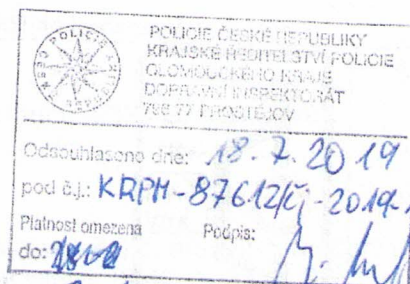 POLICIE ČESKÉ REPUBLIKY
KRAJSKÉ ŘEDITELSTVÍ POLICIE
OLOMOUCKÉHO KRAJE
DOPRAVNÍ INSPEKTORÁT
796 77 PROSTĚJOV
Odsouhlaseno dne: 18. 7. 2019
pod č.j.: KRPM-87612/čj-2019-
Platnost omezena
Podpis:
do: